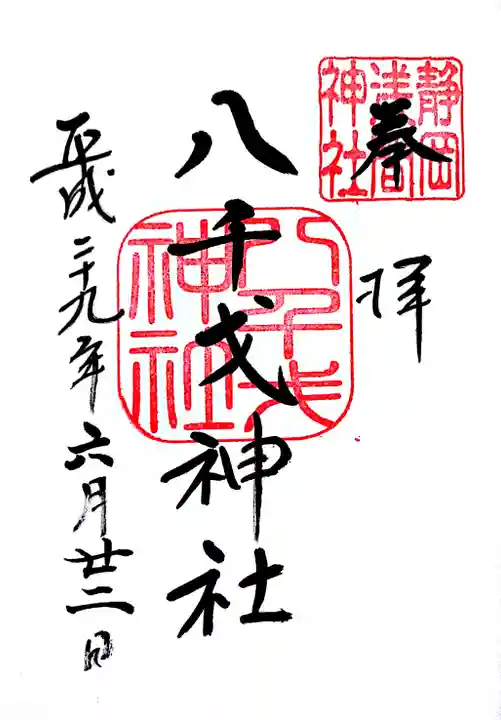 静岡浅間神社
奉拝
八千戈神社
八千戈神社
平成二十九年六月廿二日